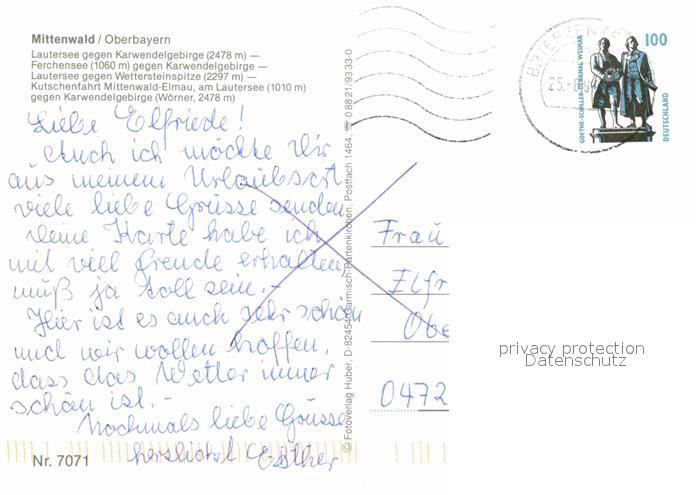 Mittenwald / Oberbayern
Lautersee gegen Karwendelgebirge (2478 m) —
Ferchensee (1060 m) gegen Karwendelgebirge —
Lautersee gegen Wettersteinspitze (2297 m) —
Kutschenfahrt Mittenwald-Elmau, am Lautersee (1010 m)
gegen Karwendelgebirge (Wörner, 2478 m)
Liebe Elfriede!
Auch ich möchte Dir
aus meinem Urlaubsort
viele liebe Grüsse senden
Deine Karte habe ich
mit viel Freude erhalten,
muß ja toll sein.-
Hier ist es auch sehr schön
und wir wollen hoffen,
dass das Wetter immer
schön ist.-
Nochmals liebe Grüsse
herzlichst Esther
Nr. 7071
© Fotoverlag Huber, D-82454 Garmisch-Partenkirchen, Postfach 1464, ☎ 0 88 21/93 33-0
BRIEFZENTR
25.-8.
GOETHE-SCHILLER-DENKMAL WEIMAR
100
DEUTSCHLAND
Frau
Elfr
Obe
0472
privacy protection
Datenschutz